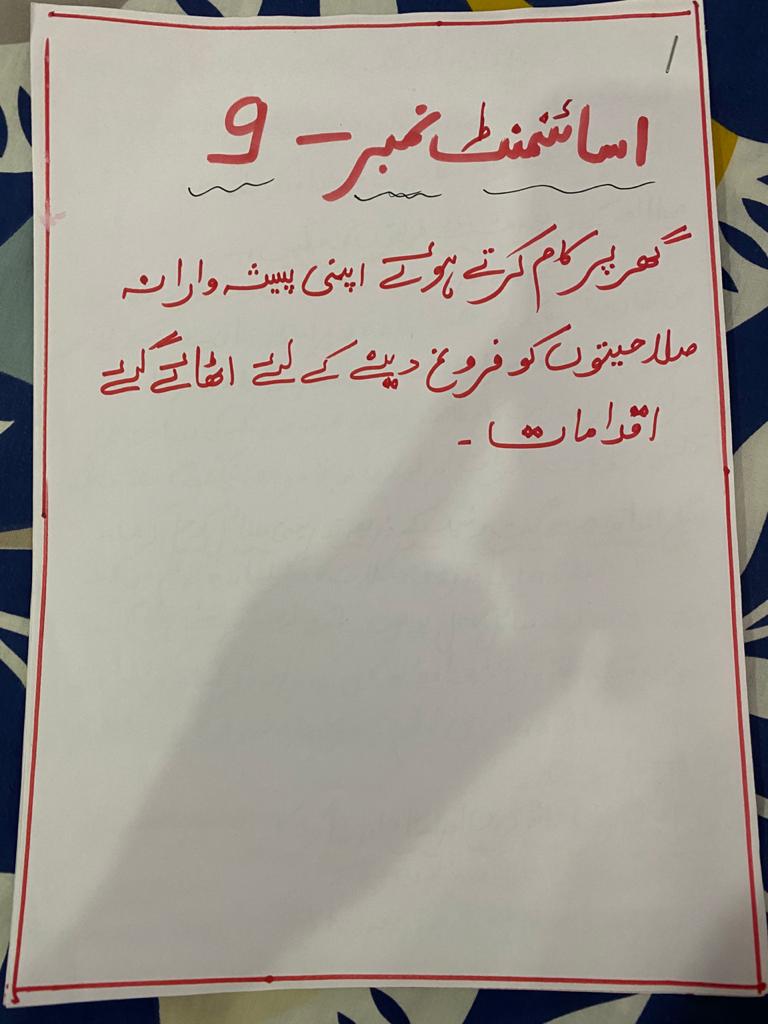 اسائنمنٹ نمبر - 9
گھر پر کام کرتے ہوئے اپنی پیشہ وارانہ
صلاحیتوں کو فروغ دینے کے لئے اٹھائے گئے
اقدامات -